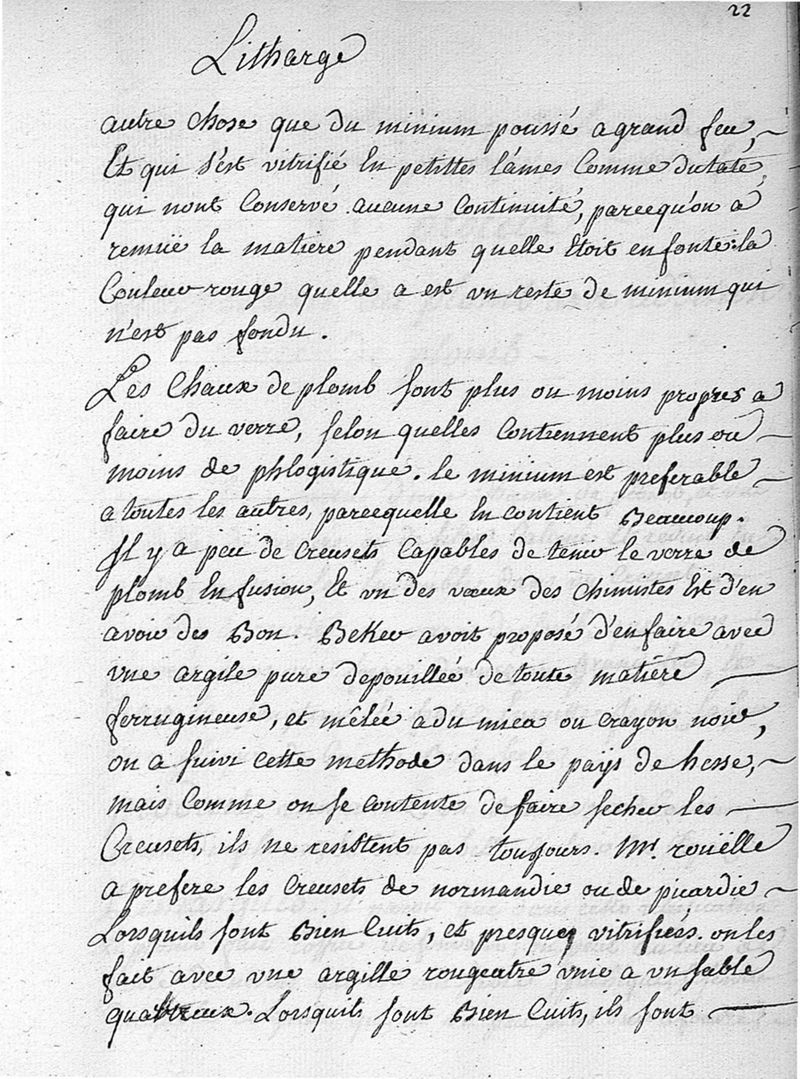 22
Litharge
autre chose que du minium poussé a grand feu,
Et qui s'est vitrifié En petittes lâmes Comme du talc,
qui n'ont Conservé aucune Continuité, parcequ'on a
remüé la matiere pendant quelle Etoit en fonte. la
Couleur rouge quelle a est un reste de minium qui
n'est pas fondu.
Les Chaux de plomb sont plus ou moins propres a
faire du verre, selon quelles Contiennent plus ou
moins de phlogistique. le minium est preferable
a toutes les autres, parcequelle En contient Beaucoup.
Il y a peu de Creusets Capables de tenir le verre de
plomb En fusion, Et un des vœux des Chimistes Est d'en
avoir des Bon. Beker avoit proposé d'en faire avec
une argile pure depouilleé de toute matiere
ferrugineuse, et mêleé a du mica ou crayon noir,
on a suivi cette methode dans le pays de hesse,
mais Comme on se contente de faire secher les
Creusets, ils ne resistent pas toujours. Mr. rouëlle
a prefere les Creusets de normandie ou de picardie
Lorsquils sont Bien Cuits, et presque vitrifiés. on les
fait avec une argille rougeatre unie a un sable
quartzeux. Lorsquils sont Bien Cuits, ils sont